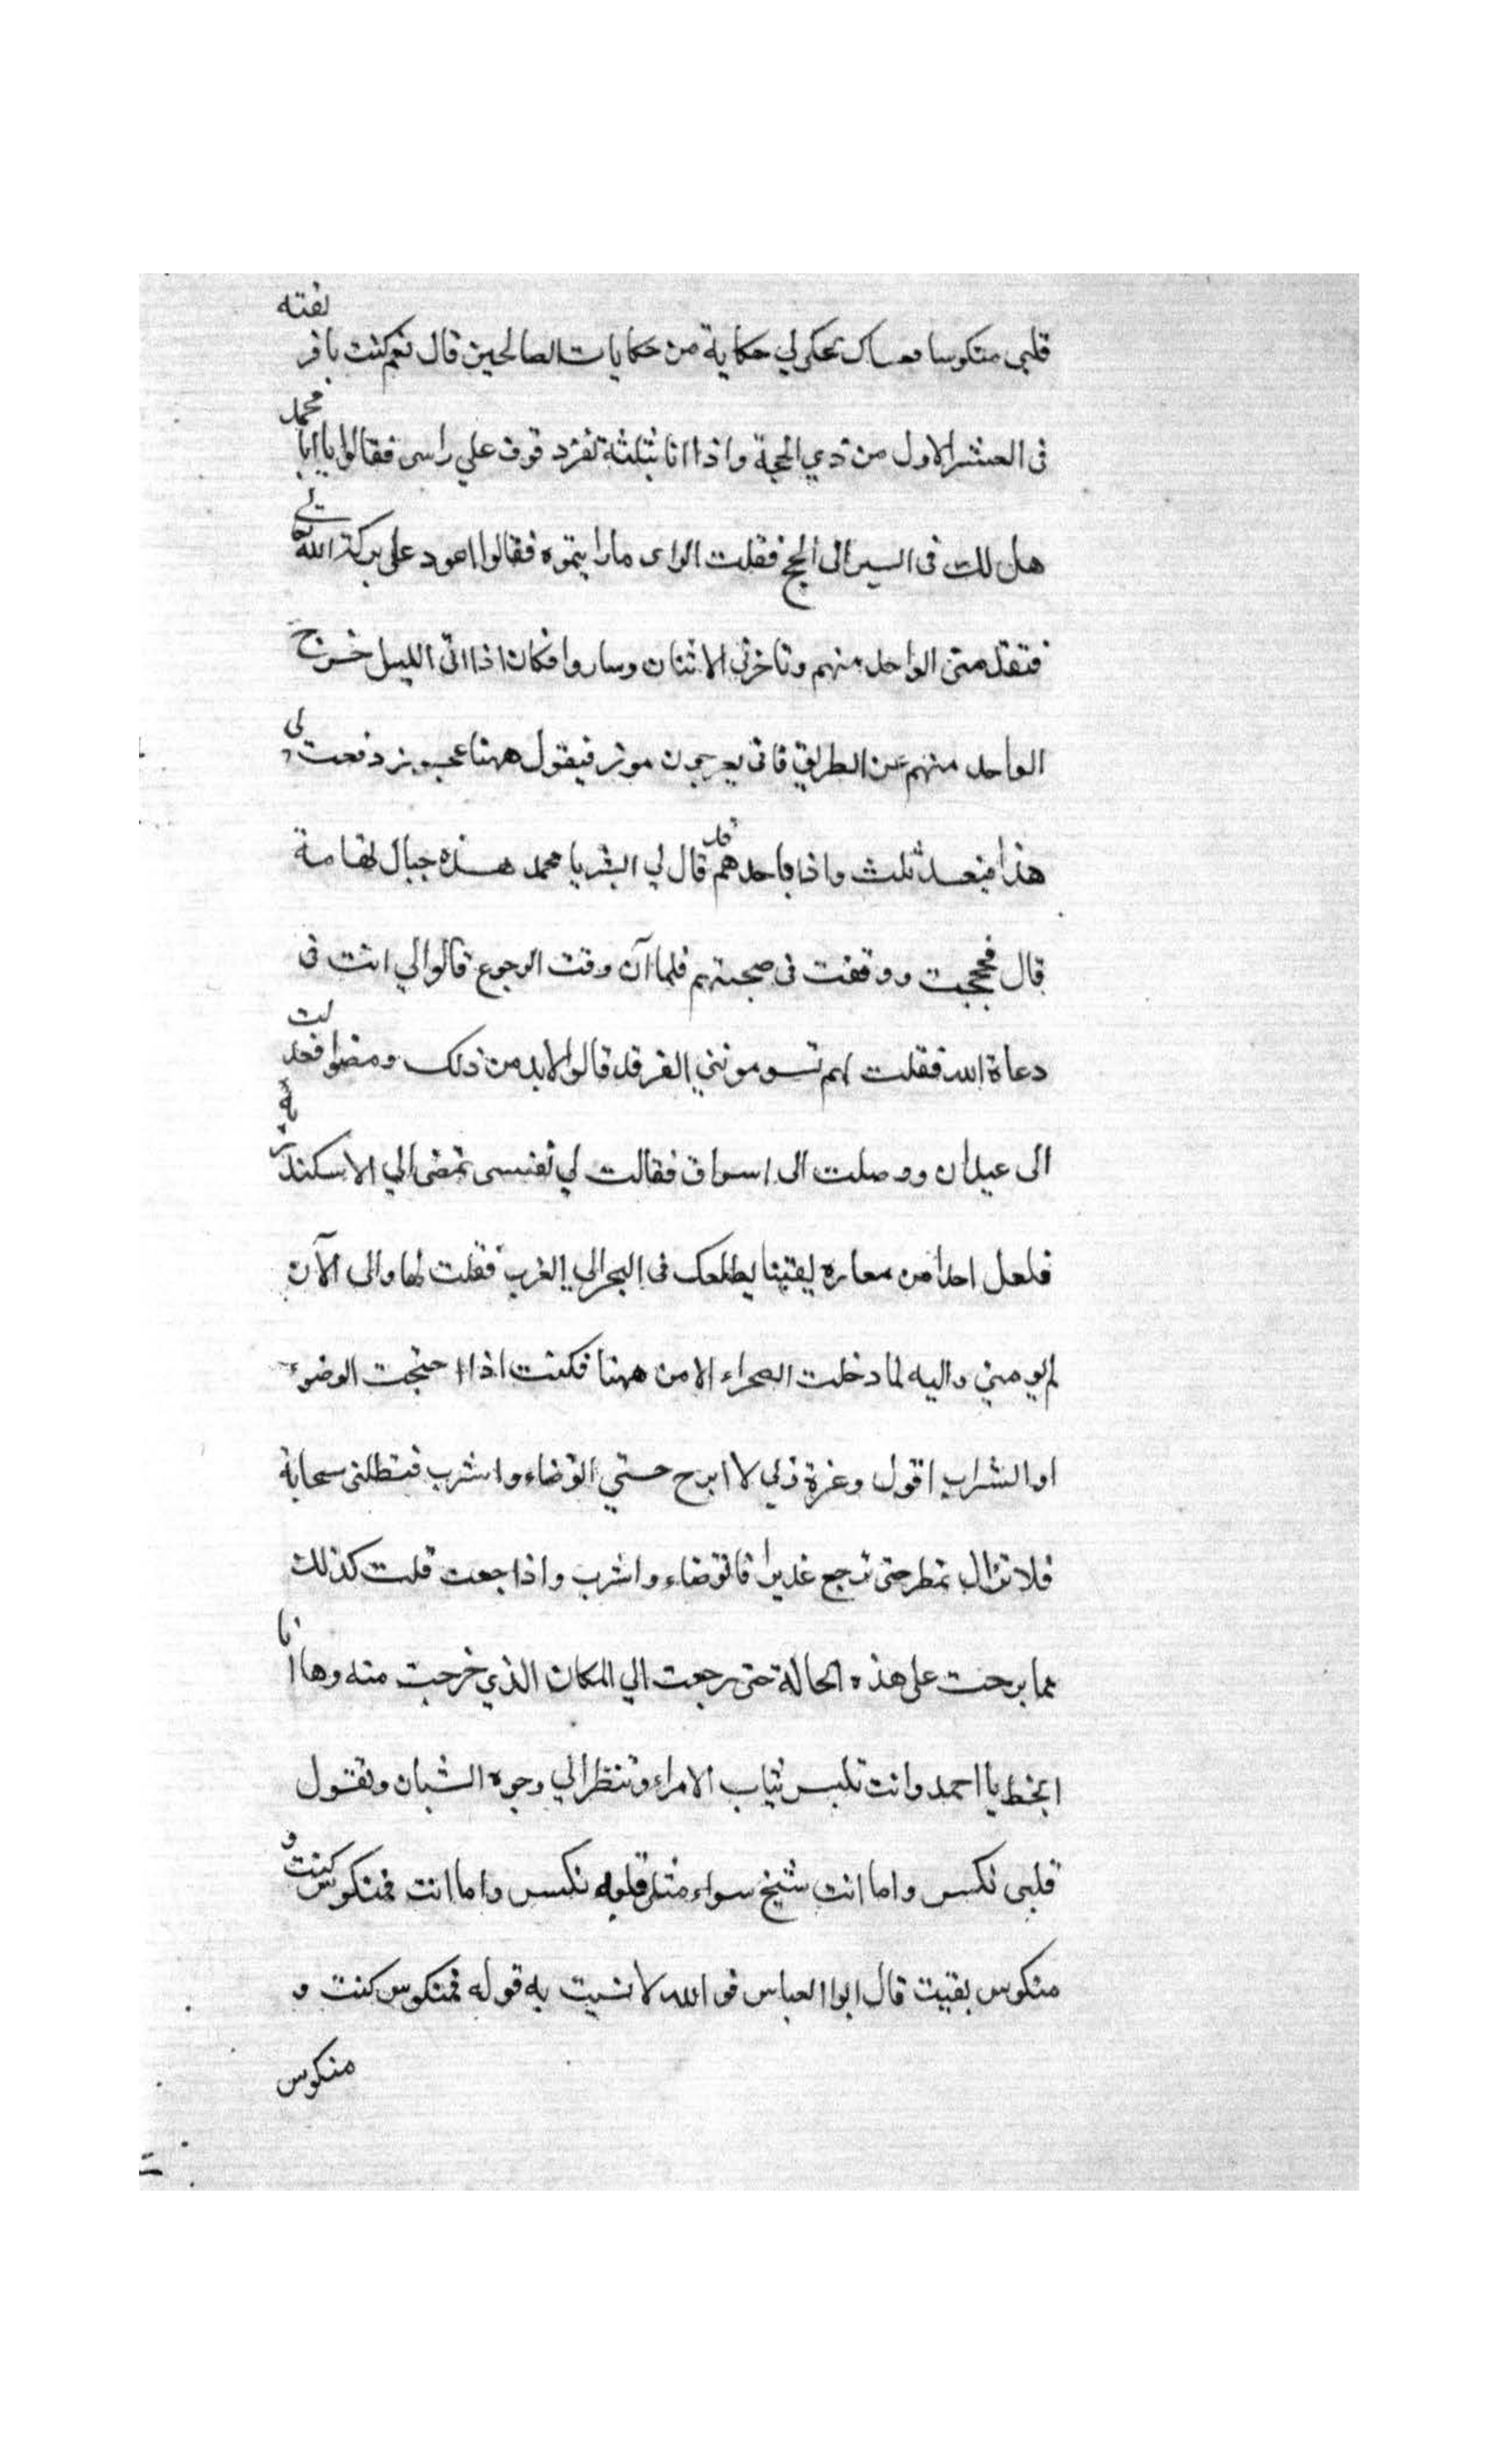 قلبي منكوسا فعساك تحكي لي حكاية من حكايات الصالحين قال نعم كنت بافريقته
في العشر الاول من ذي الحجة واذا انا بثلثة نفر وقوف علي راسي فقالوا يا ابا محمد
هل لك في السير الى الحج فقلت الراى ما رايتموه فقالوا اعود على بركة الله تعالى
فتقدمني الواحد منهم وتاخرني الاثنان وساروا فكان اذا اتى الليل خرج
الواحد منهم عن الطريق فاتى بعرجون موز فيقول ههنا عجوز دفعت لي
هذا فبعد ثلث واذا باحدهم قد قال لي ابشر يا محمد هذه جبال تهامة
قال فحججت ووقفت في صحبتهم فلما آن وقت الرجوع قالوا لي انت في
دعاة الله فقلت لهم تسومونني الفرقد قالوا لابد من ذلك ومضوا فعدلت
الى عيدان ووصلت الى اسواق فقالت لي نفسي تمضي الي الاسكندرية
فلعل احدا من معاره يطلعك في البحر الي الغرب فقلت لها والى الآن
لم يومني واليه لما دخلت الصحراء الا من ههنا فكنت اذا احتجت الوضوء
او الشراب اقول وعزة لا ابرح حتي اتوضاء واشرب فتظلني سحابة
فلا تزال تمطر حتى ترجع غديرا فاتوضاء واشرب واذا جعت قلت كذلك
فما برحت على هذه الحالة حتى رجعت الي المكان الذي خرجت منه وها انا
يا احمد وانت تلبس ثياب الامراء وتنظر الي وجوه الشبان وتقول
قلبي نكس واما انت شيخ سواء مثلي قلبه نكس واما انت فمنكوس كنت و
منكوس بقيت قال ابوا العباس فو الله لا نسيت به قوله فمنكوس كنت و
منكوس